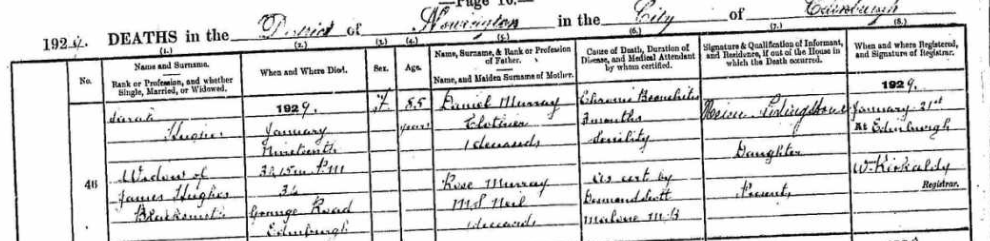 —Page 16.—
1929. DEATHS in the District of Newington in the City of Edinburgh
(1.) (2.) (3.) (4.) (5.) (6.) (7.) (8.)
No.
Name and Surname.
Rank or Profession, and whether Single, Married, or Widowed.
When and Where Died.
Sex.
Age.
Name, Surname, & Rank or Profession of Father.
Name, and Maiden Surname of Mother.
Cause of Death, Duration of Disease, and Medical Attendant by whom certified.
Signature & Qualification of Informant, and Residence, if out of the House in which the Death occurred.
When and where Registered, and Signature of Registrar.
46
Sarah
Hughes
Widow of
James Hughes
Blacksmith
1929.
January
Nineteenth
P.M
34
Grange Road
Edinburgh
F
85
years
Daniel Murray
Clothier
(deceased)
Rose Murray
M.S. Neil
(deceased)
Chronic Bronchitis
months
Senility
As cert by
Desmond Scott
Malone M.B
Livingstone
Daughter
Present
1929.
January 21st
At Edinburgh
W. Kirkaldy
Registrar.